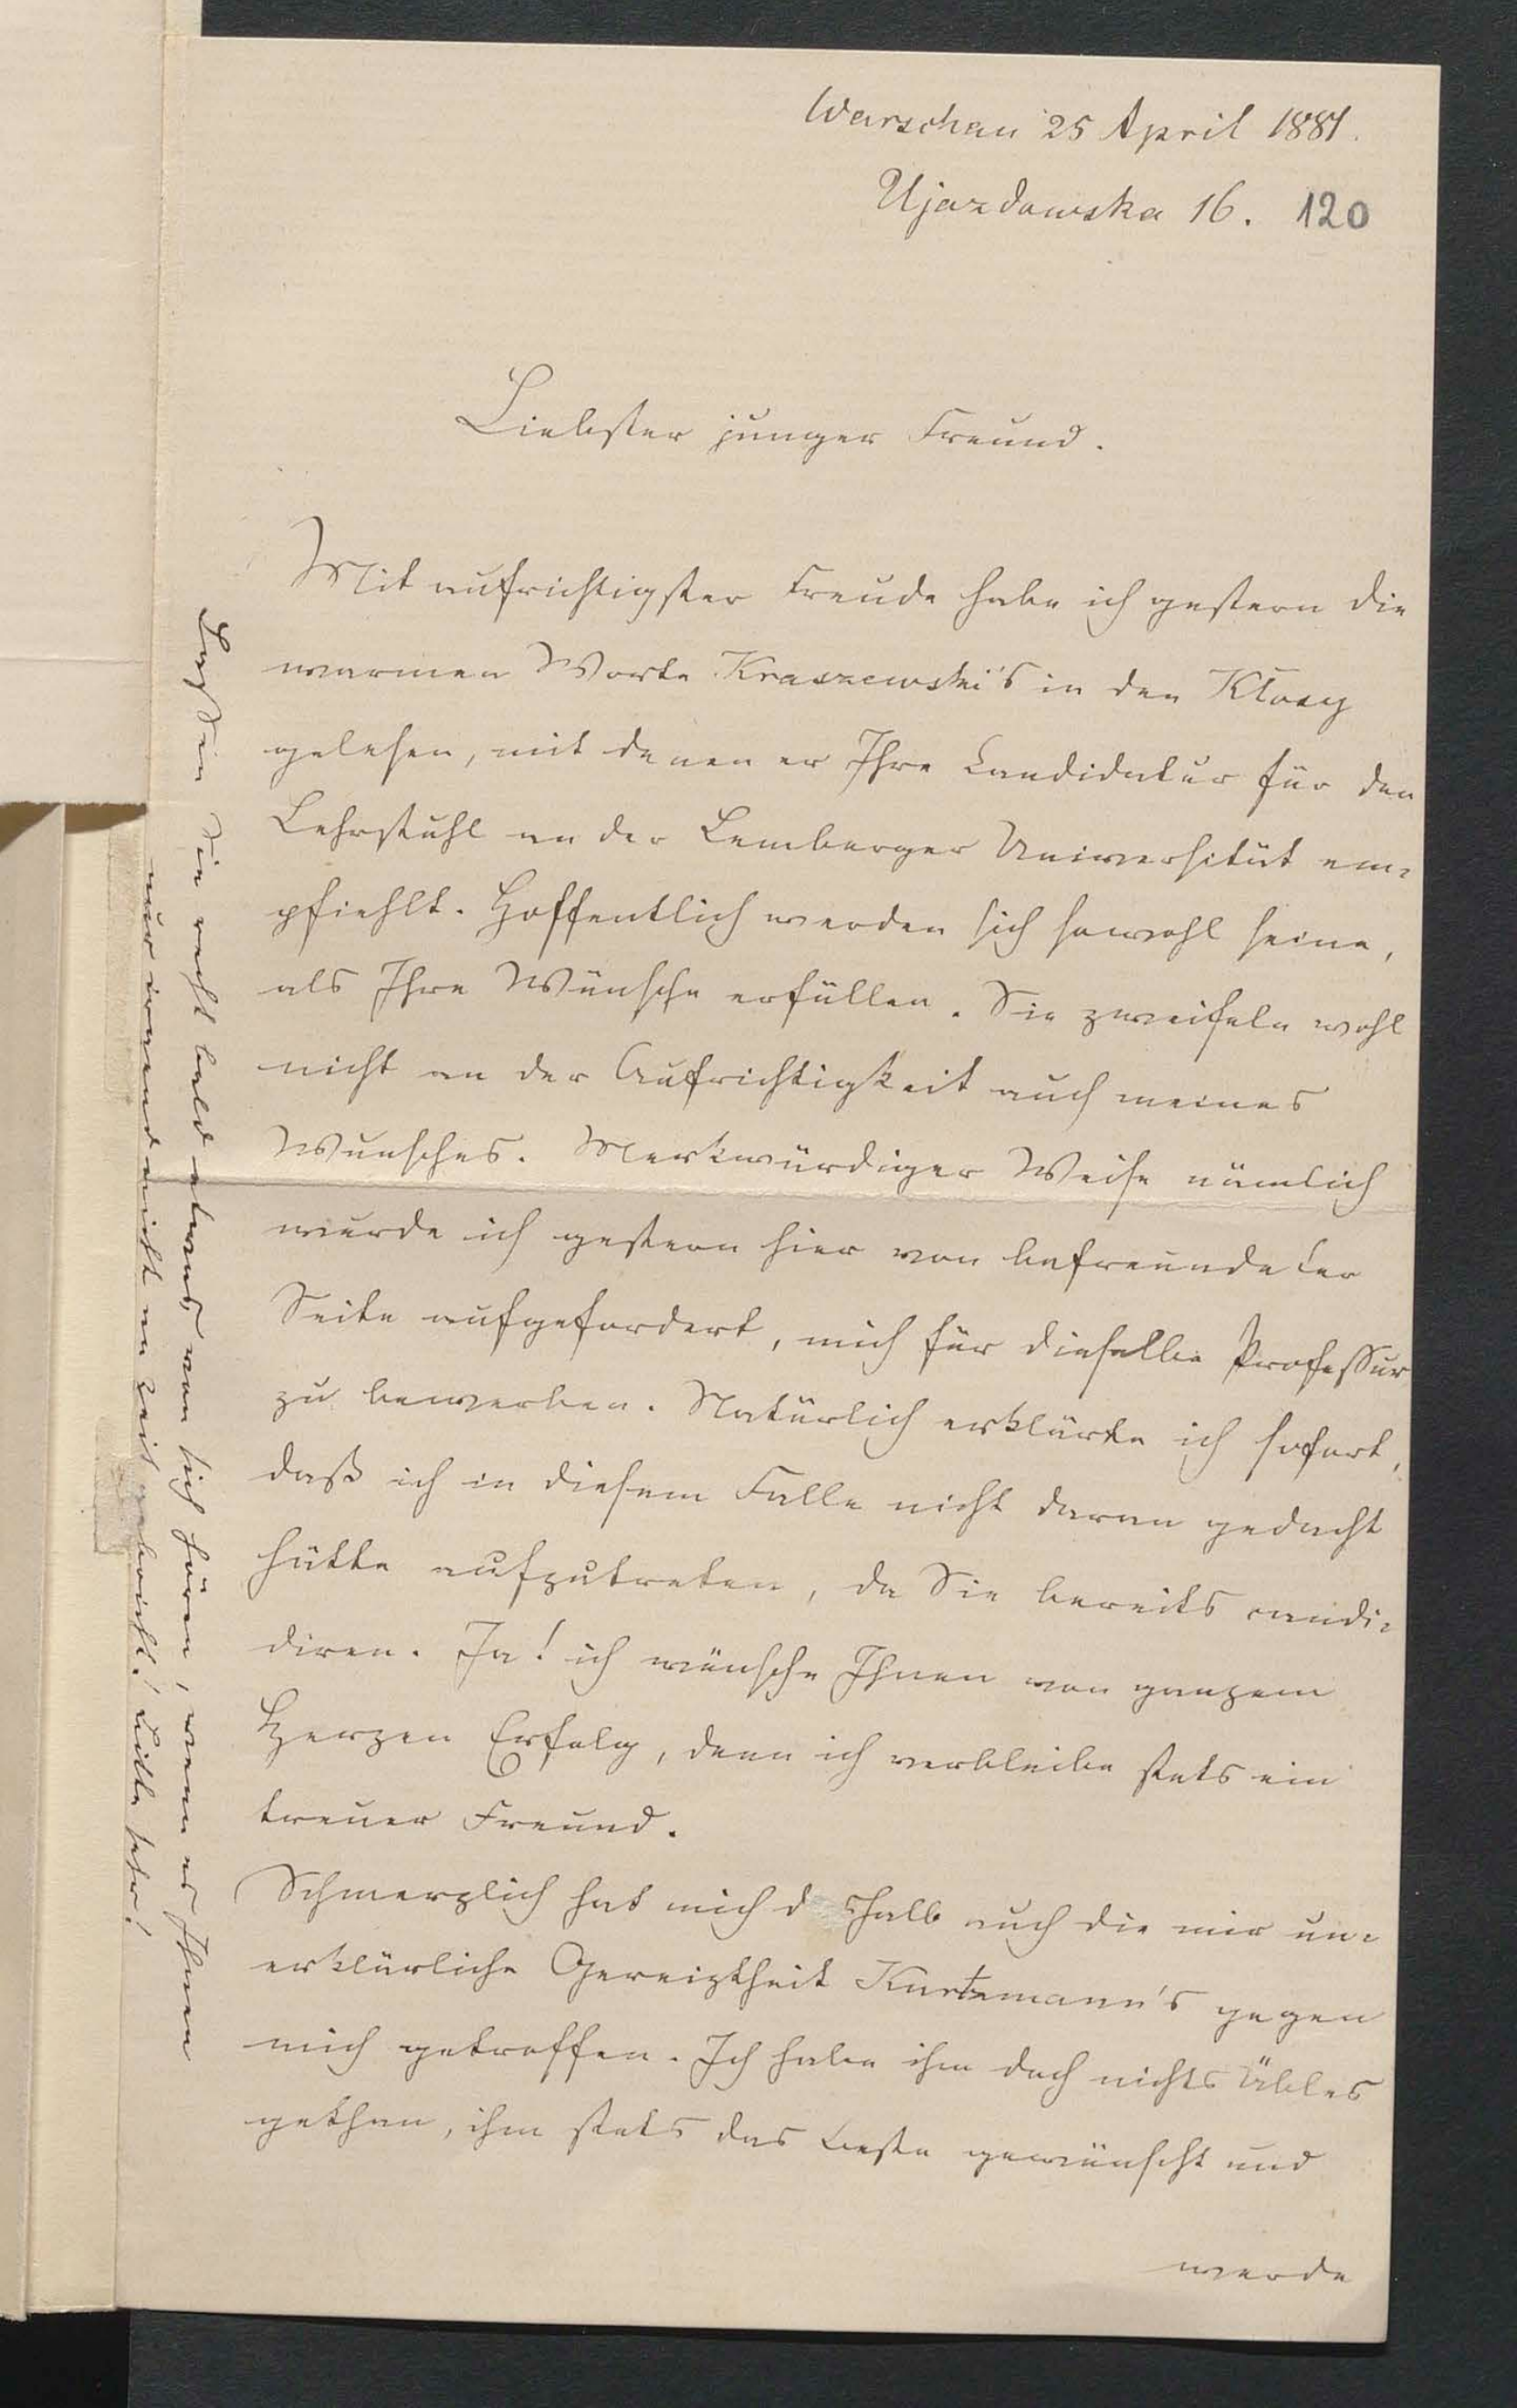 Warschau 25 April 1881.
Ujazdowska 16. 120
Liebster junger Freund.
Mit aufrichtigster Freude habe ich gestern die
warmen Worte Kraszewski's in den Kłosy
gelesen, mit denen er Ihre Candidatur für den
Lehrstuhl an der Lemberger Universität em-
pfiehlt. Hoffentlich werden sich sowohl seine,
als Ihre Wünsche erfüllen. Sie zweifeln wohl
nicht an der Aufrichtigkeit auch meines
Wunsches. Merkwürdiger Weise nämlich
wurde ich gestern hier von befreundeter
Seite aufgefordert, mich für dieselbe Professur
zu bewerben. Natürlich erklärte ich sofort,
daß ich in diesem Falle nicht daran gedacht
hätte aufzutreten, da Sie bereits candi-
diren. Ja! ich wünsche Ihnen von ganzem
Herzen Erfolg, denn ich verbleibe stets ein
treuer Freund.
Schmerzlich hat mich d shalb auch die mir un-
erklärliche Gereiztheit Kurtzmann's gegen
mich getroffen. Ich habe ihm doch nichts Übles
gethan, ihm stets das Beste gewünscht und
werde
Laßen Sie recht bald etwas von sich hören, wenn es Ihnen
nur irgend nicht an Zeit gebricht! bitte sehr!